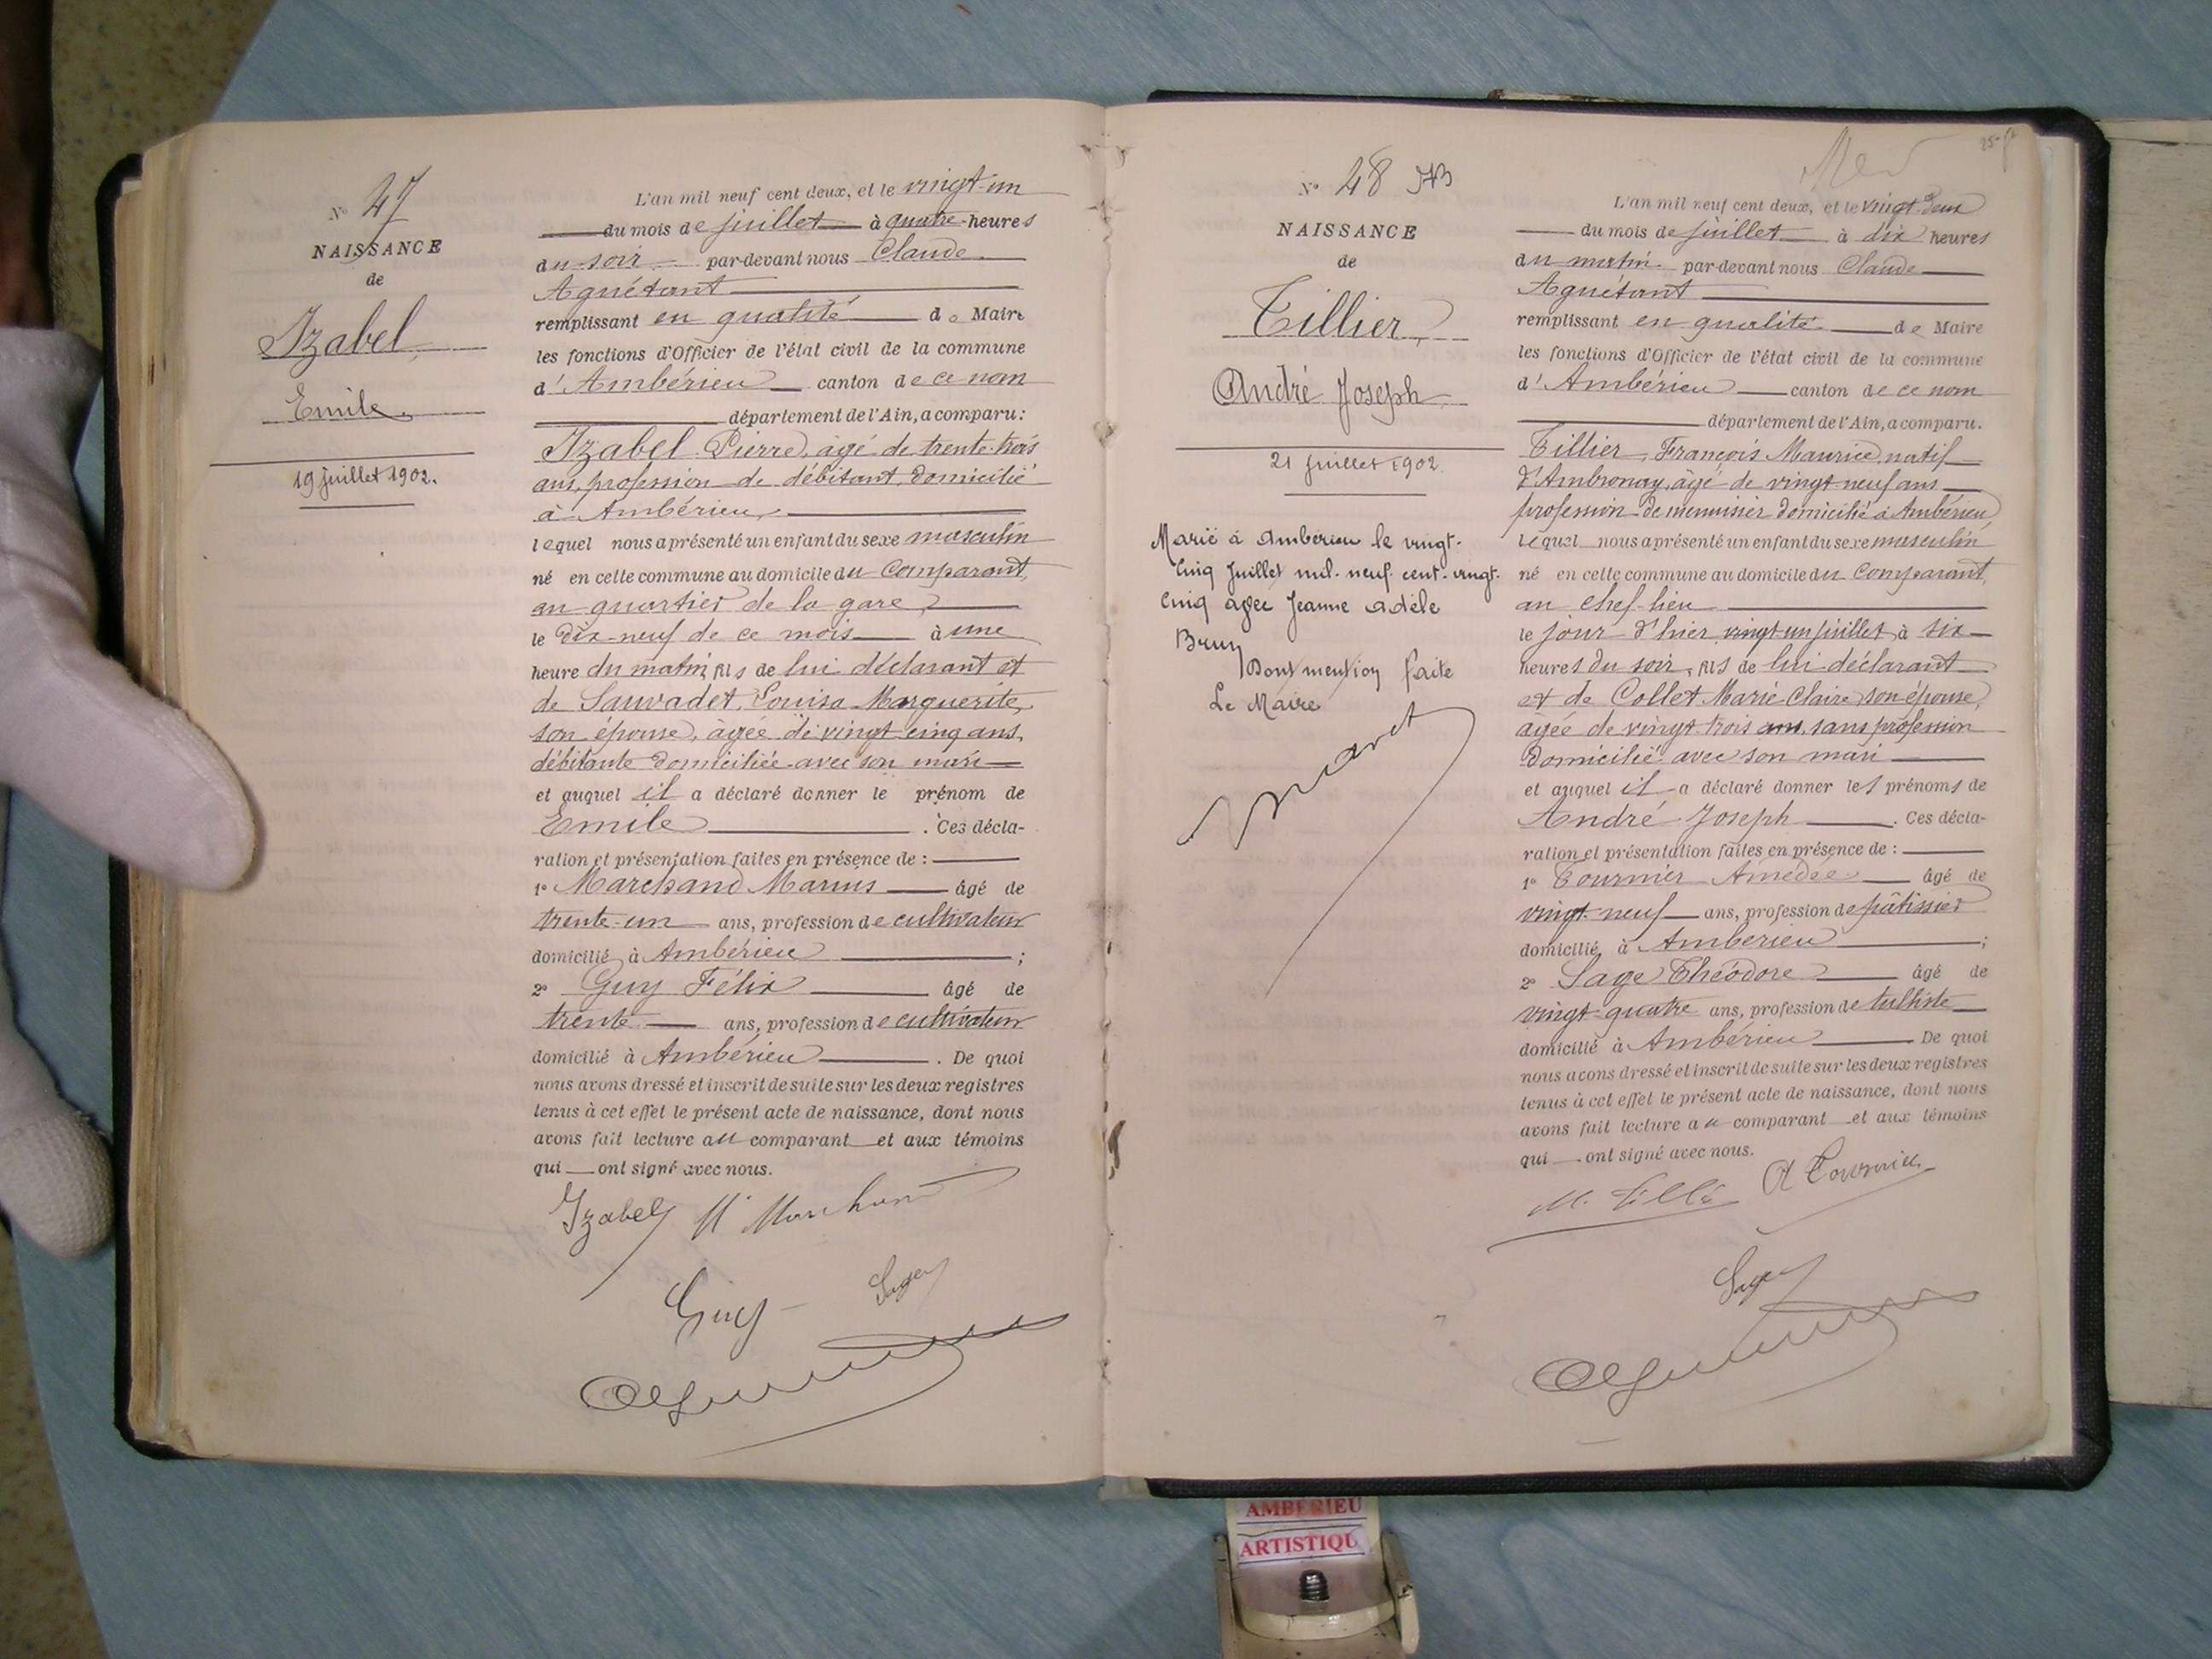 N° 47
NAISSANCE
de
Izabel
Emile
19 Juillet 1902.
L'an mil neuf cent deux, et le vingt-un
du mois de juillet à quatre heures
du soir par-devant nous Claude
Aguétant
remplissant en qualité de Maire
les fonctions d'Officier de l'état civil de la commune
d'Ambérieu canton de ce nom
département de l'Ain, a comparu:
Izabel Pierre, âgé de trente-trois
ans, profession de débitant, domicilié
à Ambérieu,
lequel nous a présenté un enfant du sexe masculin
né en cette commune au domicile du Comparant,
au quartier de la gare,
le dix-neuf de ce mois à une
heure du matin, fils de lui déclarant et
de Sauvadet, Louisa Marguerite,
son épouse, âgée de vingt-cinq ans,
débitante domiciliée avec son mari
et auquel il a déclaré donner le prénom de
Emile . Ces décla-
ration et présentation faites en présence de :
1° Marchand Marius âgé de
trente-un ans, profession de cultivateur
domicilié à Ambérieu ;
2° Guy Félix âgé de
trente ans, profession de cultivateur
domicilié à Ambérieu . De quoi
nous avons dressé et inscrit de suite sur les deux registres
tenus à cet effet le présent acte de naissance, dont nous
avons fait lecture au comparant et aux témoins
qui ont signé avec nous.
Izabel M Marchand
Guy
N° 48
NAISSANCE
de
Tillier,
André Joseph
21 juillet 1902.
Marié à Ambérieu le vingt-
cinq Juillet mil-neuf-cent-vingt-
cinq avec Jeanne Adèle
Brun
Dont mention faite
Le Maire
L'an mil neuf cent deux, et le vingt-deux
du mois de juillet à dix heures
du matin par-devant nous Claude
Aguétant
remplissant en qualité de Maire
les fonctions d'Officier de l'état civil de la commune
d'Ambérieu canton de ce nom
département de l'Ain, a comparu.
Tillier, François Maurice, natif
d'Ambronay, âgé de vingt-neuf ans
profession de menuisier domicilié à Ambérieu
lequel nous a présenté un enfant du sexe masculin
né en cette commune au domicile du Comparant,
au chef-lieu
le jour d'hier vingt-un juillet, à six
heures du soir, fils de lui déclarant
et de Collet Marie Claire, son épouse,
âgée de vingt-trois ans, sans profession
domicilié avec son mari
et auquel il a déclaré donner les prénoms de
André Joseph . Ces décla-
ration et présentation faites en présence de :
1° Tournier Amédée âgé de
vingt-neuf ans, profession de pâtissier
domicilié à Ambérieu ;
2° Sage Théodore âgé de
vingt-quatre ans, profession de tulliste
domicilié à Ambérieu De quoi
nous avons dressé et inscrit de suite sur les deux registres
tenus à cet effet le présent acte de naissance, dont nous
avons fait lecture au comparant et aux témoins
qui ont signé avec nous.
A Tournier
AMBERIEU
ARTISTIQU